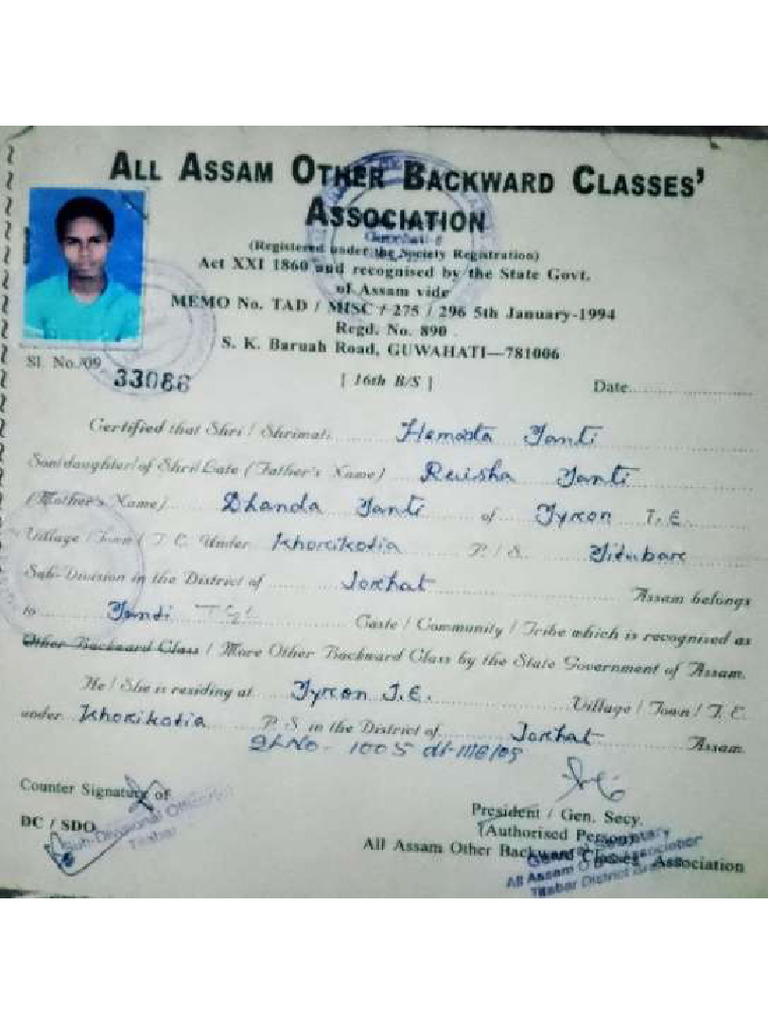 ALL ASSAM OTHER BACKWARD CLASSES'
ASSOCIATION
(Registered under the Society Registration)
Act XXI 1860 and recognised by the State Govt.
of Assam vide
MEMO No. TAD / MISC / 275 / 296 5th January-1994
Regd. No. 890
S. K. Baruah Road, GUWAHATI—781006
Sl. No./09 33086 [ 16th B/S ] Date
Certified that Shri / Shrimati Hemanta Tanti
Son/daughter/of Shri/Late (Father's Name) Tanti
(Mother's Name) Dhanda Tanti of Tyroon T.E.
Village / Town / T.E. Under Kharikatia P. / S. Titabar
Sub-Division in the District of Jorhat Assam belongs
to Caste / Community / Tribe which is recognised as
Other Backward Class / More Other Backward Class by the State Government of Assam.
He / She is residing at Tyroon T.E. Village / Town / T. E.
under Kharikatia P. S in the District of Jorhat Assam.
Sl. No - 1005
Counter Signature of
DC / SDO
Sub-Divisional Officer
Titabar
President / Gen. Secy.
(Authorised Person)
All Assam Other Backward Classes' Association
General Secretary
Titabar District